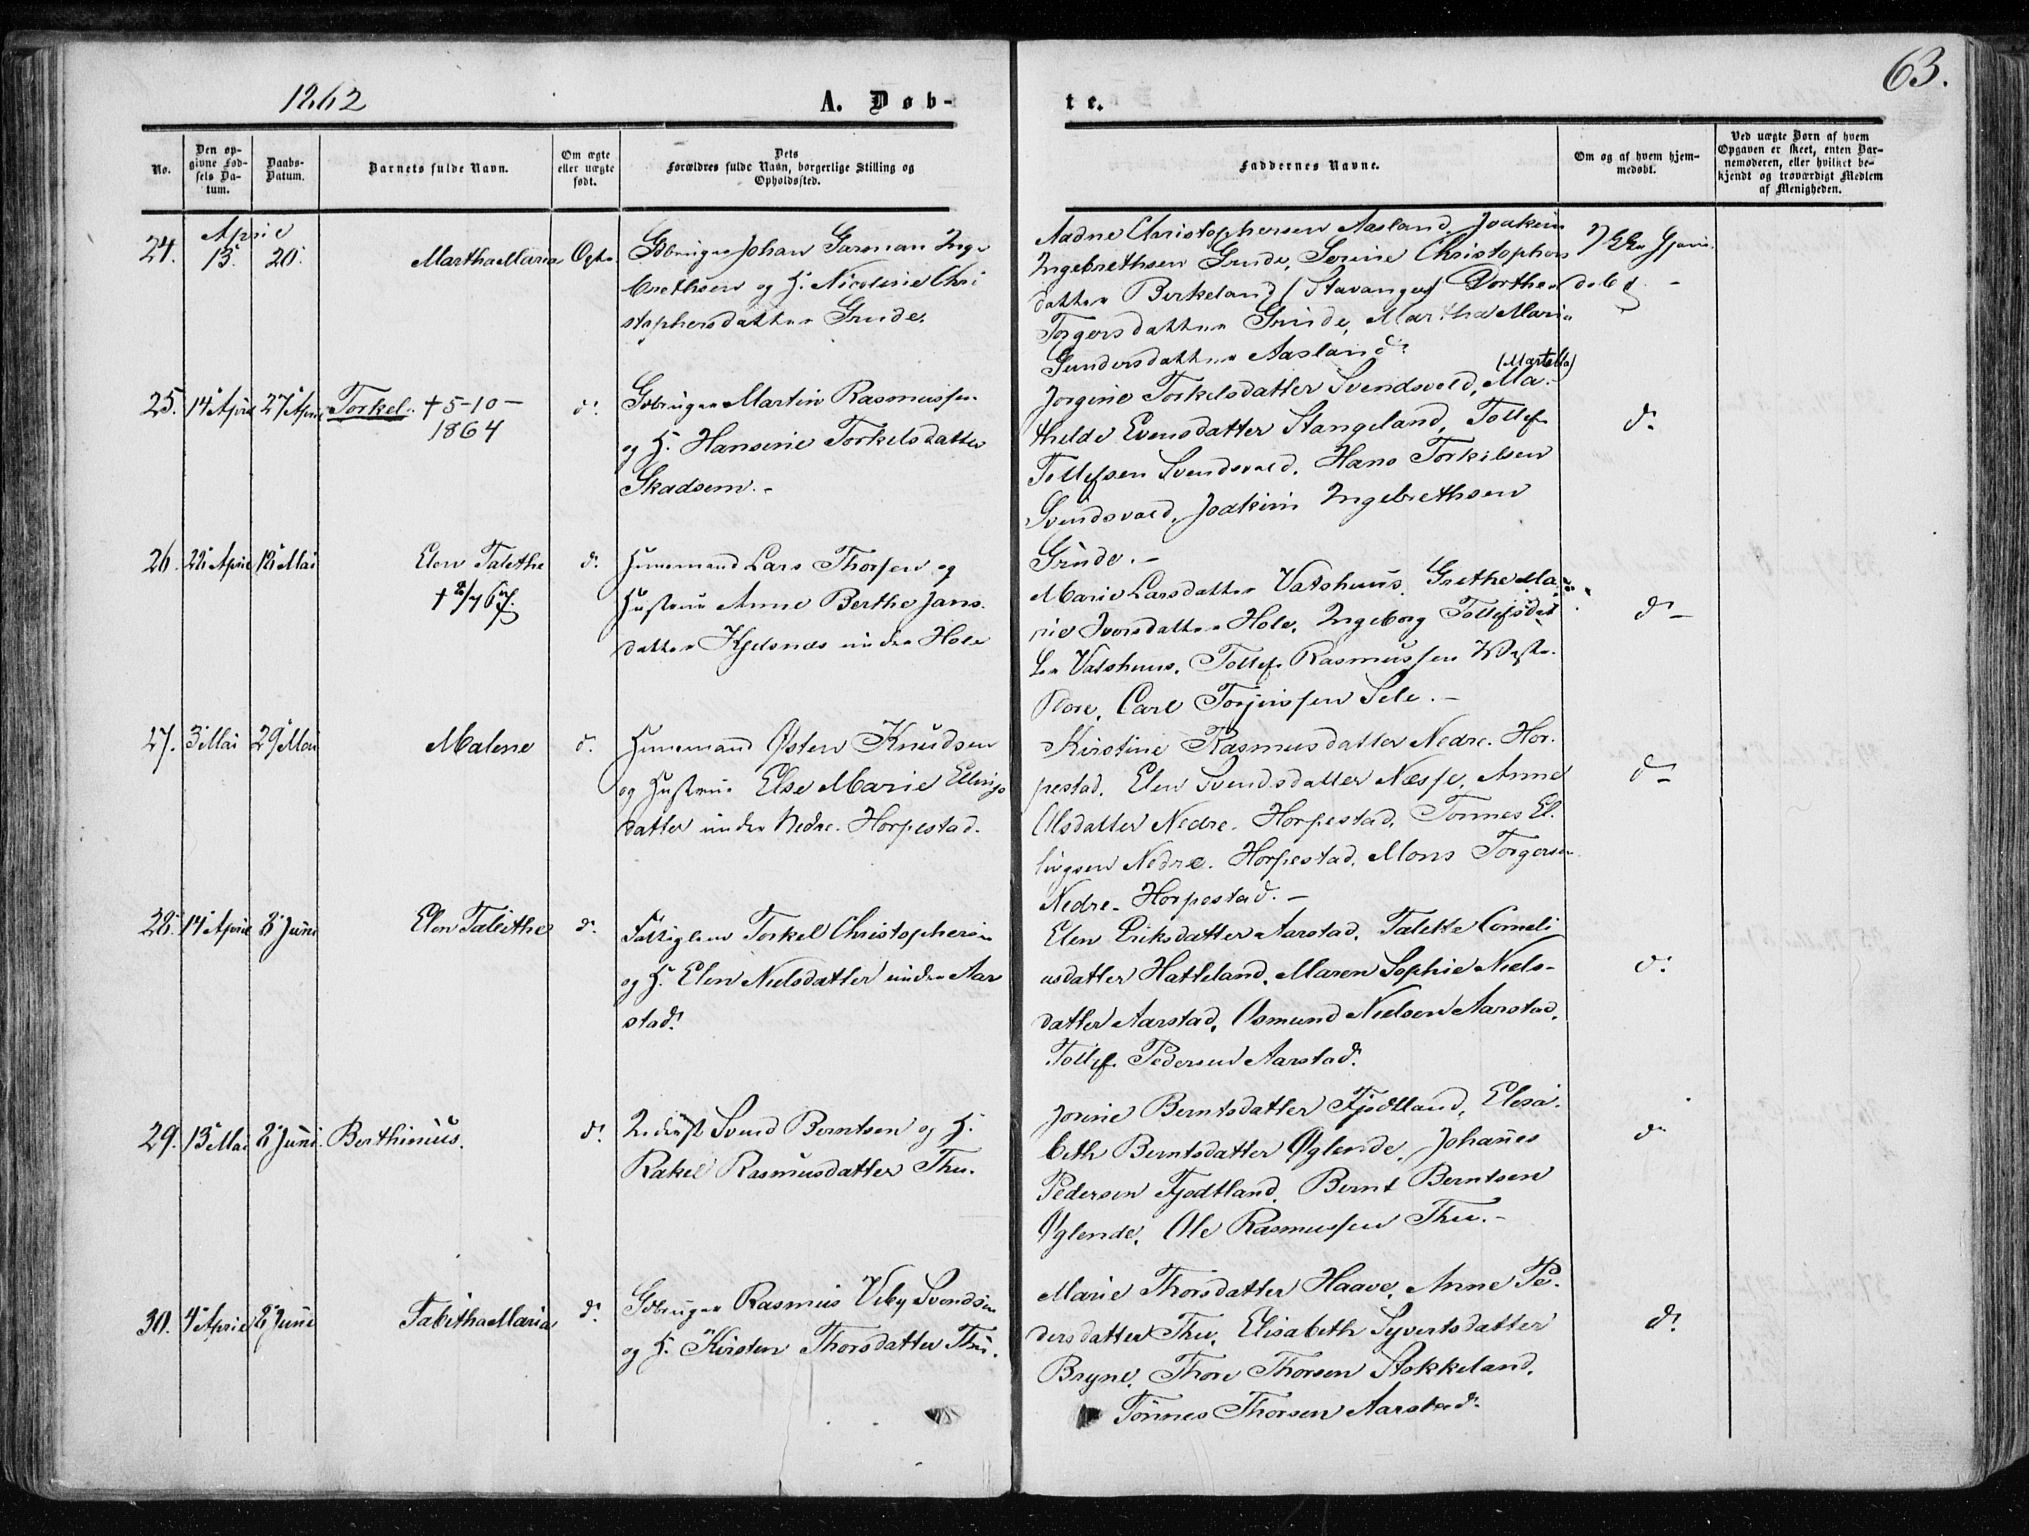 1862
A. Døb-
te.
63.
No.
Den op-
givne Fød-
sels Da-
tum.
Daabs-
Datum.
Barnets fulde Navn.
Om ægte
eller uægte
født.
Dets
Forældres fulde Navn, borgerlige Stilling og
Opholdssted.
Faddernes Navne.
Om og af hvem hjem-
medøbt.
Ved uægte Børn af hvem
Opgaven er skeet, enten Bar-
nemoderen, eller hvilket be-
kjendt og troværdigt Medlem
af Menigheden.
April
24. 13. 20. Martha Maria Ægte.
Gdbruger Johan Garman Inge
brethsen og H. Nicoline Chri
stophersdatter Grude.
Aadne Christophersen Aasland, Joakim
Ingebrethsen Grude, Serine Christophers
datter Birkeland (Stavanger) Dorthea
Torgersdatter Grude, Martha Maria
Gundersdatter Aasland.
Ikke Hjem
døbt. -
25. 14 April 27 April Torkel. + 5-10-
1864
do.
Gdbruger Martin Rasmussen
og H. Hansine Torkelsdatter
Skadsem. -
(Martella)
Jorgine Torkelsdatter Svendsvold, Ma-
thilde Evensdatter Stangeland, Tollef
Tollefsen Svendsvold. Hans Torkilsen
Svendsvold, Joakim Ingebrethsen
Grude. -
do.
26. 22 April 18 Mai Elen Talithe
do.
Huusmand Lars Thorsen og
Hustrue Anne Berthe Jans-
datter Kjelsnæs under Hole
Marie Larsdatter Vatshuus. Grethe Ma-
rie Iversdatter Hole, Ingeborg Tollefsdat
ter Vatshuus, Tollef Rasmussen
Carl Torjersen Sele. -
do -
27. 3 Mai 29 Mai Malene do.
Huusmand Østen Knudsen
og Hustrue Else Marie Ellings
datter under Nedre Horpestad.
Kirstine Rasmusdatter Nedre Hor-
pestad, Elen Svendsdatter Næsse, Anne
Olsdatter Nedre Horpestad, Tønnes El-
lingsen Nedre Horpestad, Mons Torgersen
Nedre Horpestad. -
do -
28. 14 April 8 Juni Elen Talithe do.
Fattiglem Torkel Christophersen
og H. Elen Nielsdatter under Aar
stad.
Elen Eriksdatter Aarstad, Talette Corneli
usdatter Hatteland, Maren Sophie Niels-
datter Aarstad, Osmund Nielsen Aarstad,
Tollef Pedersen Aarstad.
do.
29. 13 Mai 8 Juni. Berthinius. do.
Inderst Svend Berntsen og H.
Rakel Rasmusdatter Thu.
Jorine Berntsdatter Fjodtland, Elisa-
beth Berntsdatter Øglende, Johanes
Pedersen Fjodtland, Bernt Berntsen
Øglende, Ole Rasmussen Thu. -
do
30. 4 April 8 Juni Tabitha Maria do.
Gdbruger Rasmus Viby Svendsen
og H. Kirsten Thorsdatter Thu.
Marie Thorsdatter Haave, Anne Pe-
dersdatter Thu, Elisabeth Syvertsdatter
Bryne, Thore Thorsen Stokkeland,
Tønnes Thorsen Aarstad.
do.